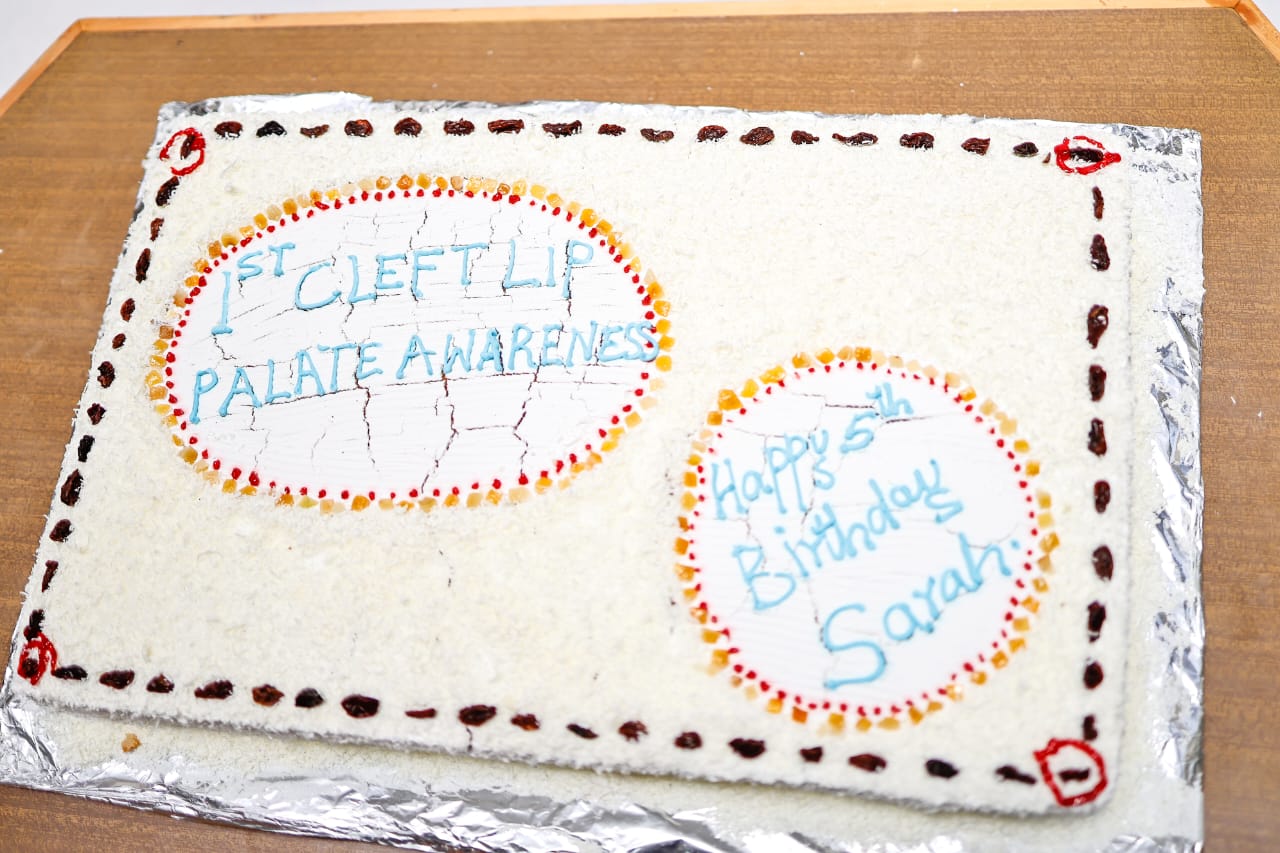 1ST CLEFT LIP
PALATE AWARENESS
Happy 5th
Birthday
Sarah.